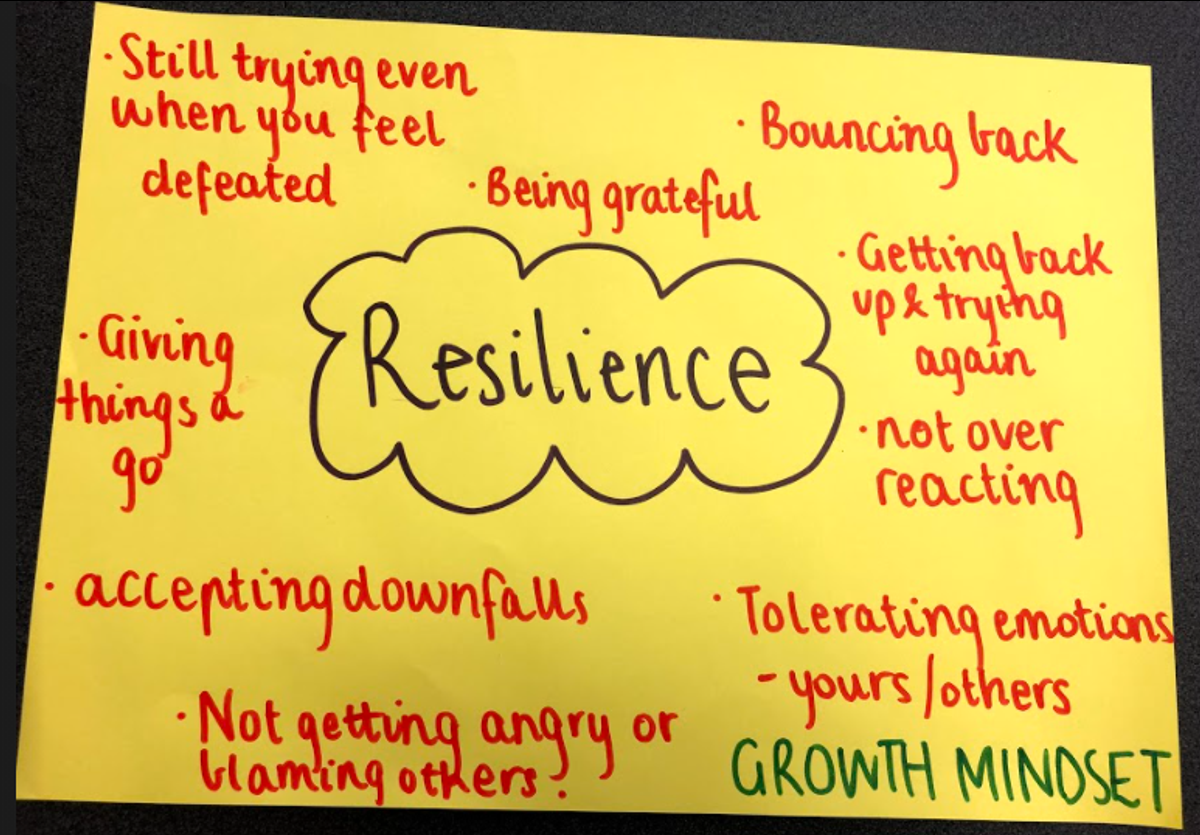 ·Still trying even
when you feel
defeated
·Being grateful
·Bouncing back
·Getting back
up & trying
again
·not over
reacting
Resilience
·Giving
things a
go
·accepting downfalls
·Tolerating emotions
- yours/others
·Not getting angry or
blaming others?
GROWTH MINDSET